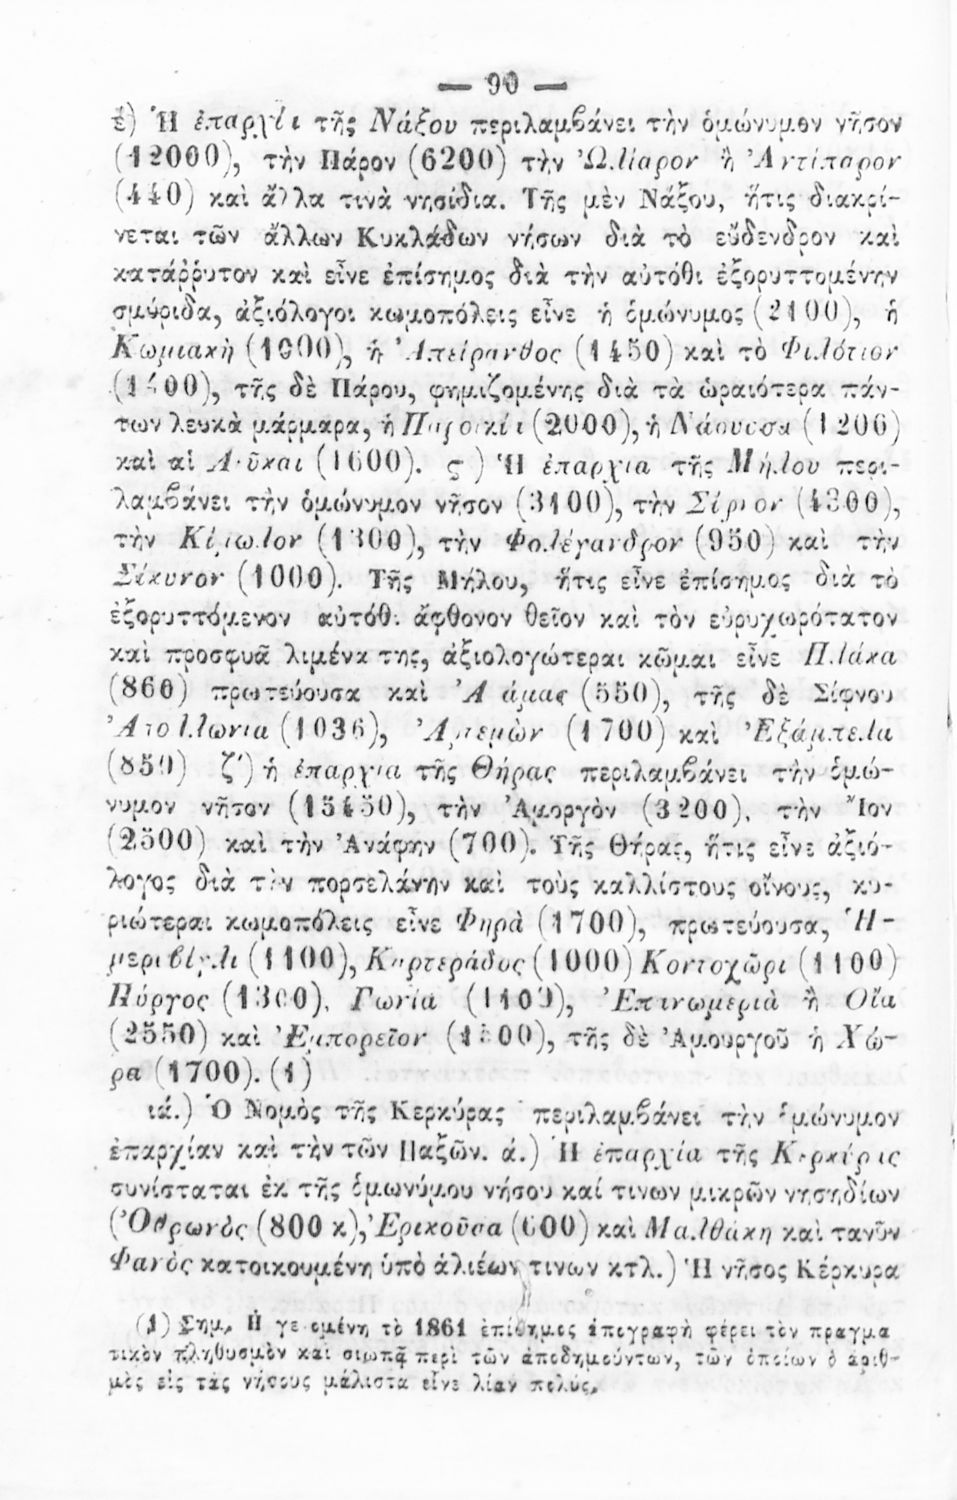 — 90 —
έ) Ἡ ἐπαρχία τῆς Νάξου περιλαμβάνει τὴν ὁμώνυμον νῆσον
(12000), τὴν Πάρον (6200) τὴν Ὠλίαρον ἢ Ἀντίπαρον
(440) καὶ ἄλλα τινὰ νησίδια. Τῆς μὲν Νάξου, ἥτις διακρί-
νεται τῶν ἄλλων Κυκλάδων νήσων διὰ τὸ εὔδενδρον καὶ
κατάῤῥυτον καὶ εἶνε ἐπίσημος διὰ τὴν αὐτόθι ἐξορυττομένην
σμύριδα, ἀξιόλογοι κωμοπόλεις εἶνε ἡ ὁμώνυμος (2100), ἡ
Κωμιακὴ (1000), ἡ Ἀπείρανθος (1450) καὶ τὸ Φιλότιον
τῆς δὲ Πάρου, φημιζομένης διὰ τὰ ὡραιότερα πάν-
των λευκὰ μάρμαρα, ἡ Παροικία (2000), ἡ Νάουσσα (1200)
καὶ αἱ Λεῦκαι (1600). ς΄) Ἡ ἐπαρχία τῆς Μήλου περι-
λαμβάνει τὴν ὁμώνυμον νῆσον (3100), τὴν Σίφνον (4300),
τὴν Κίμωλον (1300), τὴν Φολέγανδρον (950) καὶ τὴν
Σίκυνον (1000). Τῆς Μήλου, ἥτις εἶνε ἐπίσημος διὰ τὸ
ἐξορυττόμενον αὐτόθι ἄφθονον θεῖον καὶ τὸν εὐρυχωρότατον
καὶ προσφυᾶ λιμένα της, ἀξιολογώτεραι κῶμαι εἶνε Πλάκα
(860) πρωτεύουσα καὶ Ἀδάμας (550), τῆς δὲ Σίφνου
Ἀπολλωνία (1036), Ἀρτεμὼν (1700) καὶ Ἐξάμπελα
(850) ζ΄) ἡ ἐπαρχία τῆς Θήρας περιλαμβάνει τὴν ὁμώ-
νυμον νῆσον (15450), τὴν Ἀμοργὸν (3200), τὴν Ἴον
(2500) καὶ τὴν Ἀνάφην (700). Τῆς Θήρας, ἥτις εἶνε ἀξιό-
λογος διὰ τὴν πορσελάνην καὶ τοὺς καλλίστους οἴνους, κυ-
ριώτεραι κωμοπόλεις εἶνε Φηρὰ (1700), πρωτεύουσα, Ἡ-
μεριβίγλι (1100), Καρτεράδος (1000) Κοντοχῶρι (1100)
Πύργος (1300), Γωνία (1100), Ἐπινωμεριὰ ἢ Οἴα
(2550) καὶ Ἐμπορεῖον τῆς δὲ Ἀμουργοῦ ἡ Χώ-
ρα (1700). (1)
ιά.) Ὁ Νομὸς τῆς Κερκύρας περιλαμβάνει τὴν ὁμώνυμον
ἐπαρχίαν καὶ τὴν τῶν Παξῶν. ά.) Ἡ ἐπαρχία τῆς Κερκύρας
συνίσταται ἐκ τῆς ὁμωνύμου νήσου καί τινων μικρῶν νησηδίων
(Ὀθρωνὸς (800 κ), Ἐρικοῦσα (600) καὶ Μαλθάκη καὶ τανῦν
Φανὸς κατοικουμένη ὑπὸ ἁλιέων τινων κτλ.) Ἡ νῆσος Κέρκυρα
(1) Σημ. Ἡ γενομένη τὸ 1861 ἐπίσημος ἀπογραφὴ φέρει τὸν πραγμα
τικὸν πληθυσμὸν καὶ σιωπᾷ περὶ τῶν ἀποδημούντων, τῶν ὁποίων ὁ ἀριθ-
μὸς εἰς τὰς νήσους μάλιστα εἶνε λίαν πολύς.